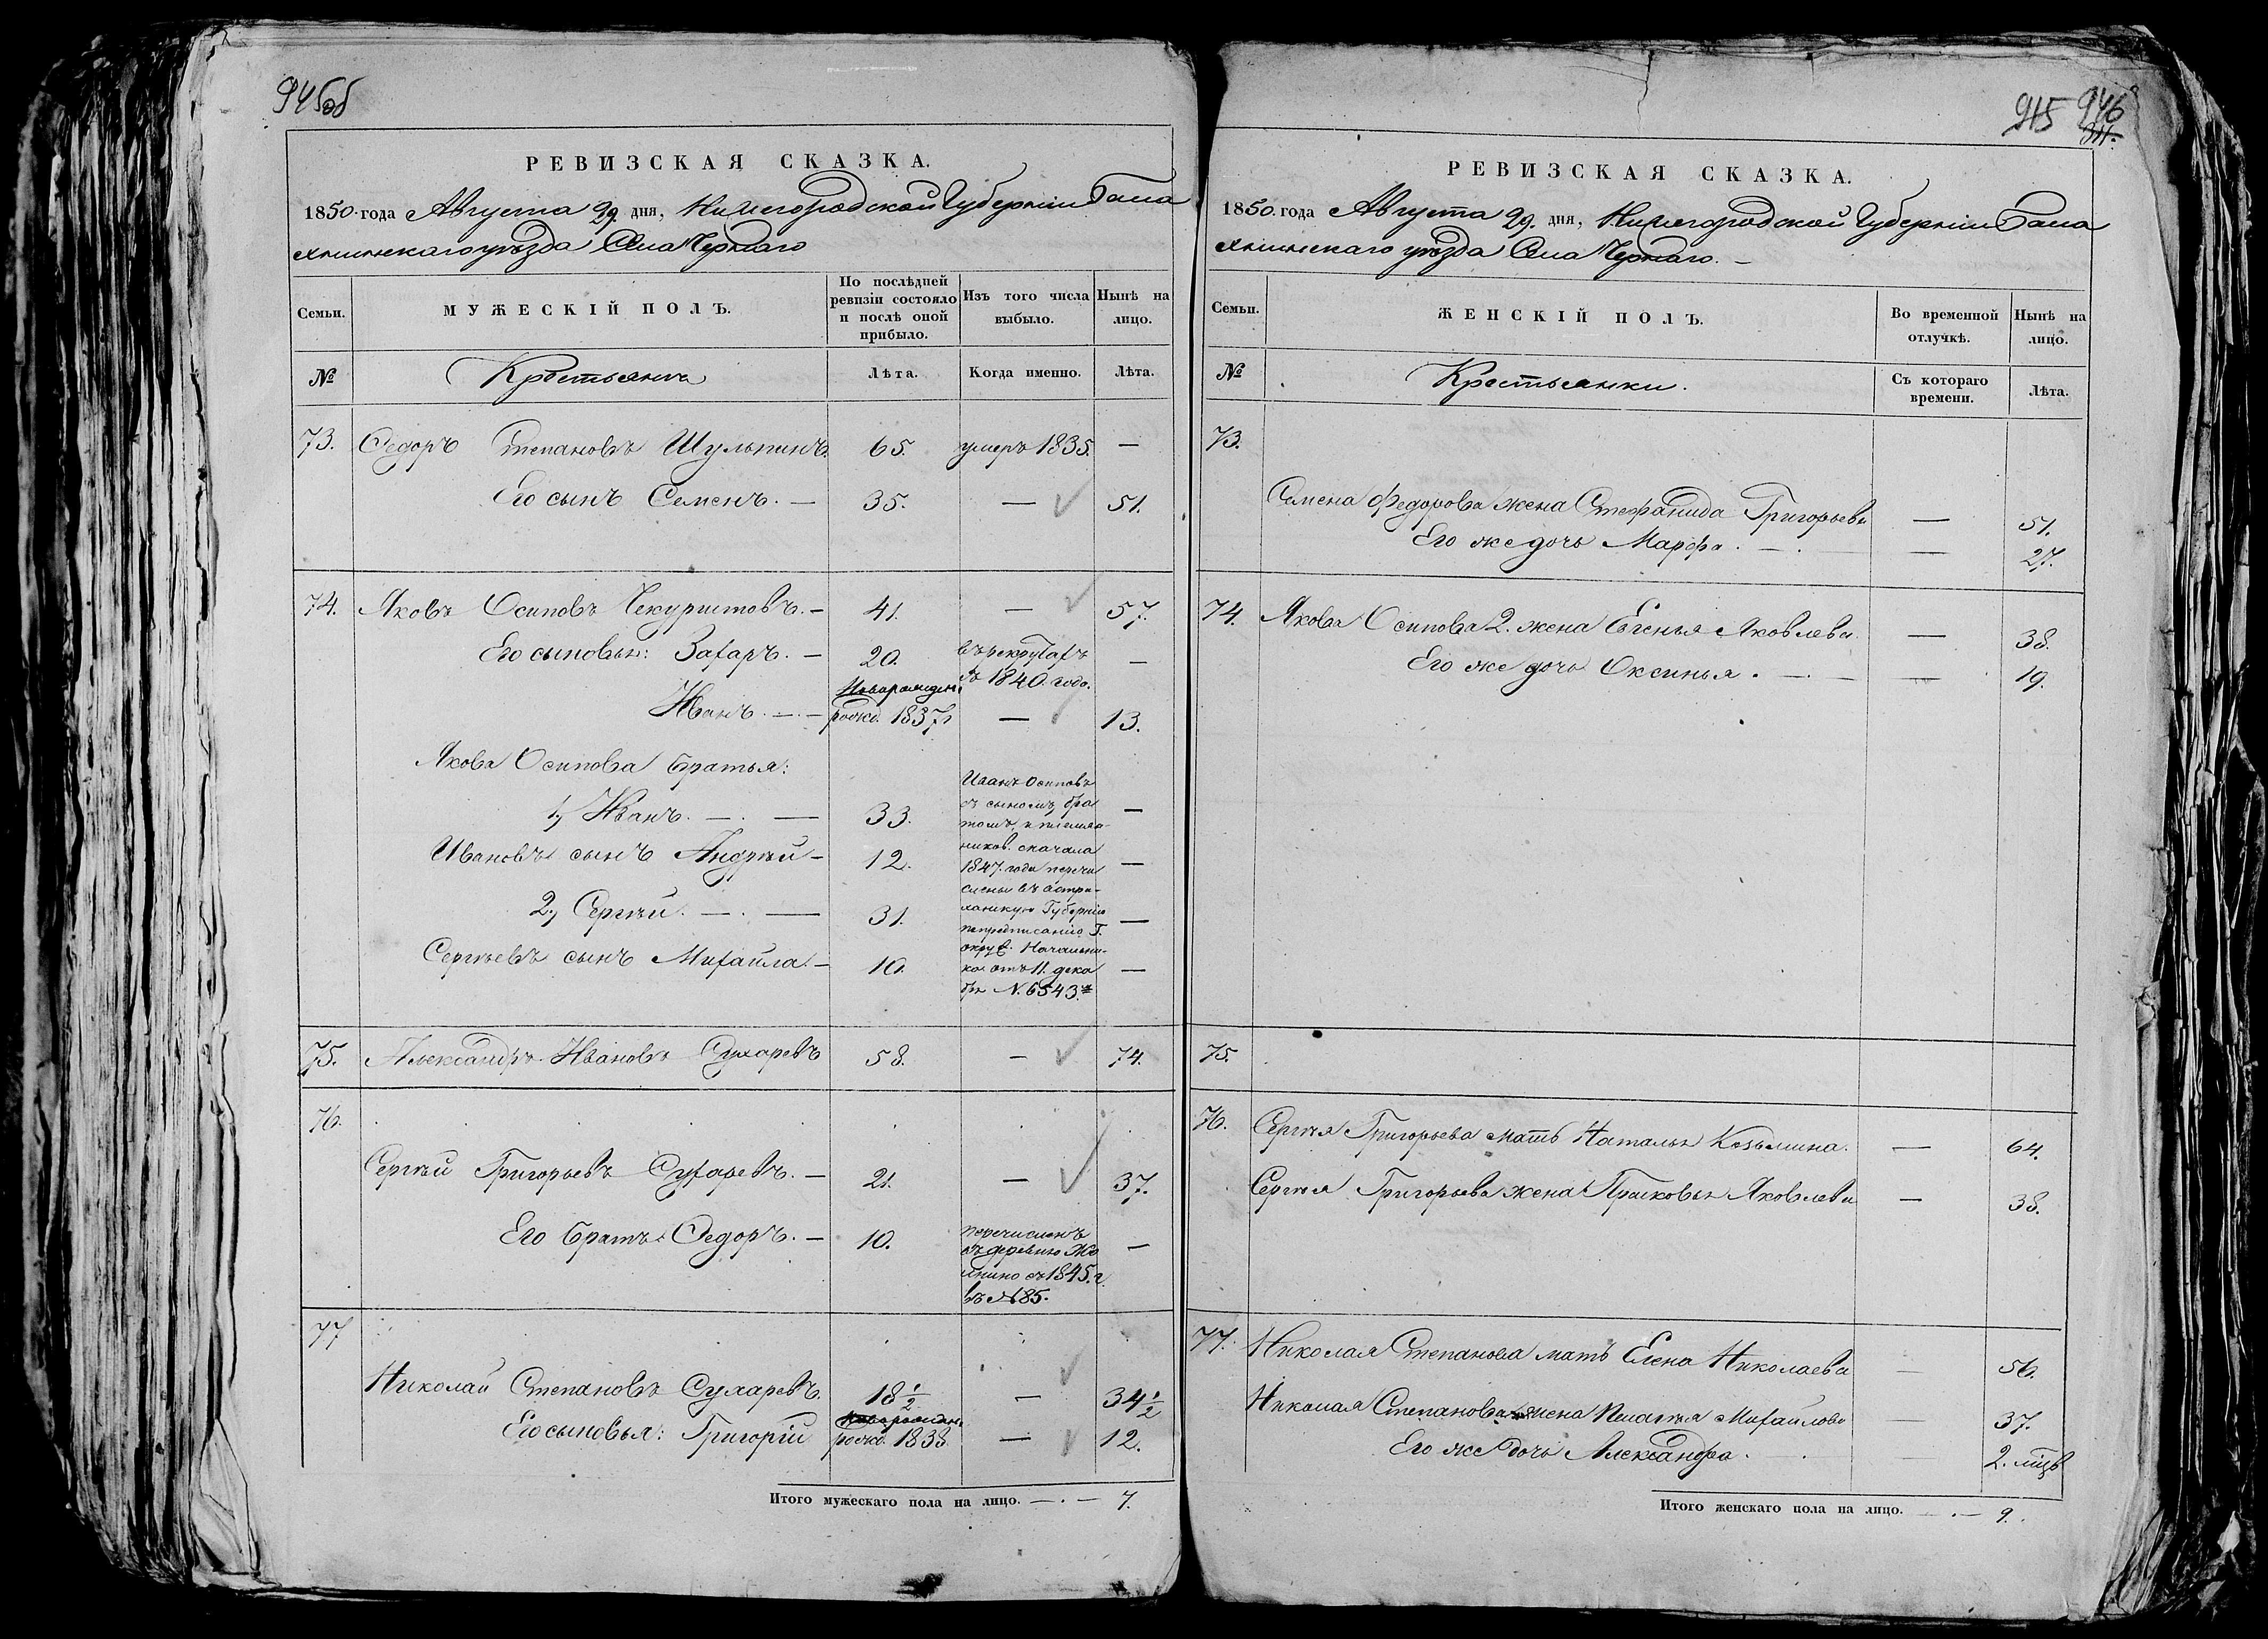 945об
РЕВИЗСКАЯ СКАЗКА.
1850 года Августа 29. дня, Нижегородской Губерніи Бала
хнинскаго уѣзда Села Чернаго
Семьи.
МУЖЕСКІЙ ПОЛЪ.
По послѣдней ревизіи состояло и послѣ оной прибыло.
Изъ того числа выбыло.
Нынѣ на лицо.
№
Крестьяне
Лѣта.
Когда именно.
Лѣта.
73. Федоръ Степановъ Шульпинъ 65. умеръ 1835. —
Его сынъ Семенъ. — 35. — 51.
74. Яковъ Осиповъ Чекуристовъ. — 41. — 57.
Его сыновья: Захаръ. — 20. въ рекрутахъ
съ 1840. года. —
Новорожден.
Иванъ. — рожд. 1837 — 13.
Якова Осипова братья:
1.) Иванъ. — 33. —
Ивановъ сынъ Андрей — 12. —
2.) Сергѣй. — 31. —
Сергѣевъ сынъ Михайла. — 10. —
Иванъ Осиповъ
съ сыномъ, бра
томъ, и племян-
ников. сначала
1847. года перечи
слены въ Астра-
ханскую Губернію
по предписанію Г.
окруж. Начальни-
ка отъ 11. дека
бря N. 6543.
75. Александръ Ивановъ Сухаревъ 58. — 74.
76.
Сергѣй Григорьевъ Сухаревъ. — 21. — 37.
Его братъ Федоръ. — 10. —
перечисленъ
въ деревню Жо
лнино съ 1845. г.
въ №85.
77
Николай Степановъ Сухаревъ. 18½ — 34½
новорожден.
Его сыновья: Григорій рожд. 1838 — 12.
Итого мужескаго пола на лицо. — 7.
945 946
РЕВИЗСКАЯ СКАЗКА.
1850. года Августа 29. дня, Нижегородской Губерніи Бала
хнинскаго уѣзда Села Чернаго. —
Семьи.
ЖЕНСКІЙ ПОЛЪ.
Во временной отлучкѣ.
Нынѣ на лицо.
№
Крестьянки.
Съ котораго времени.
Лѣта.
73.
Семена Федорова жена Стефанида Григорьева — 51.
Его же дочь Марфа. — 27.
74. Якова Осипова 2. жена Евгенья Яковлева — 38.
Его же дочь Оксинья. — 19.
75.
76. Сергѣя Григорьева мать Наталья Козьмина. — 64.
Сергѣя Григорьева жена Прасковья Яковлева — 38.
77. Николая Степанова мать Елена Николаева — 56.
Николая Степанова жена Пелагѣя Михайлова — 37.
Его же дочь Александра. — 2. мѣс.
Итого женскаго пола на лицо. — 9.